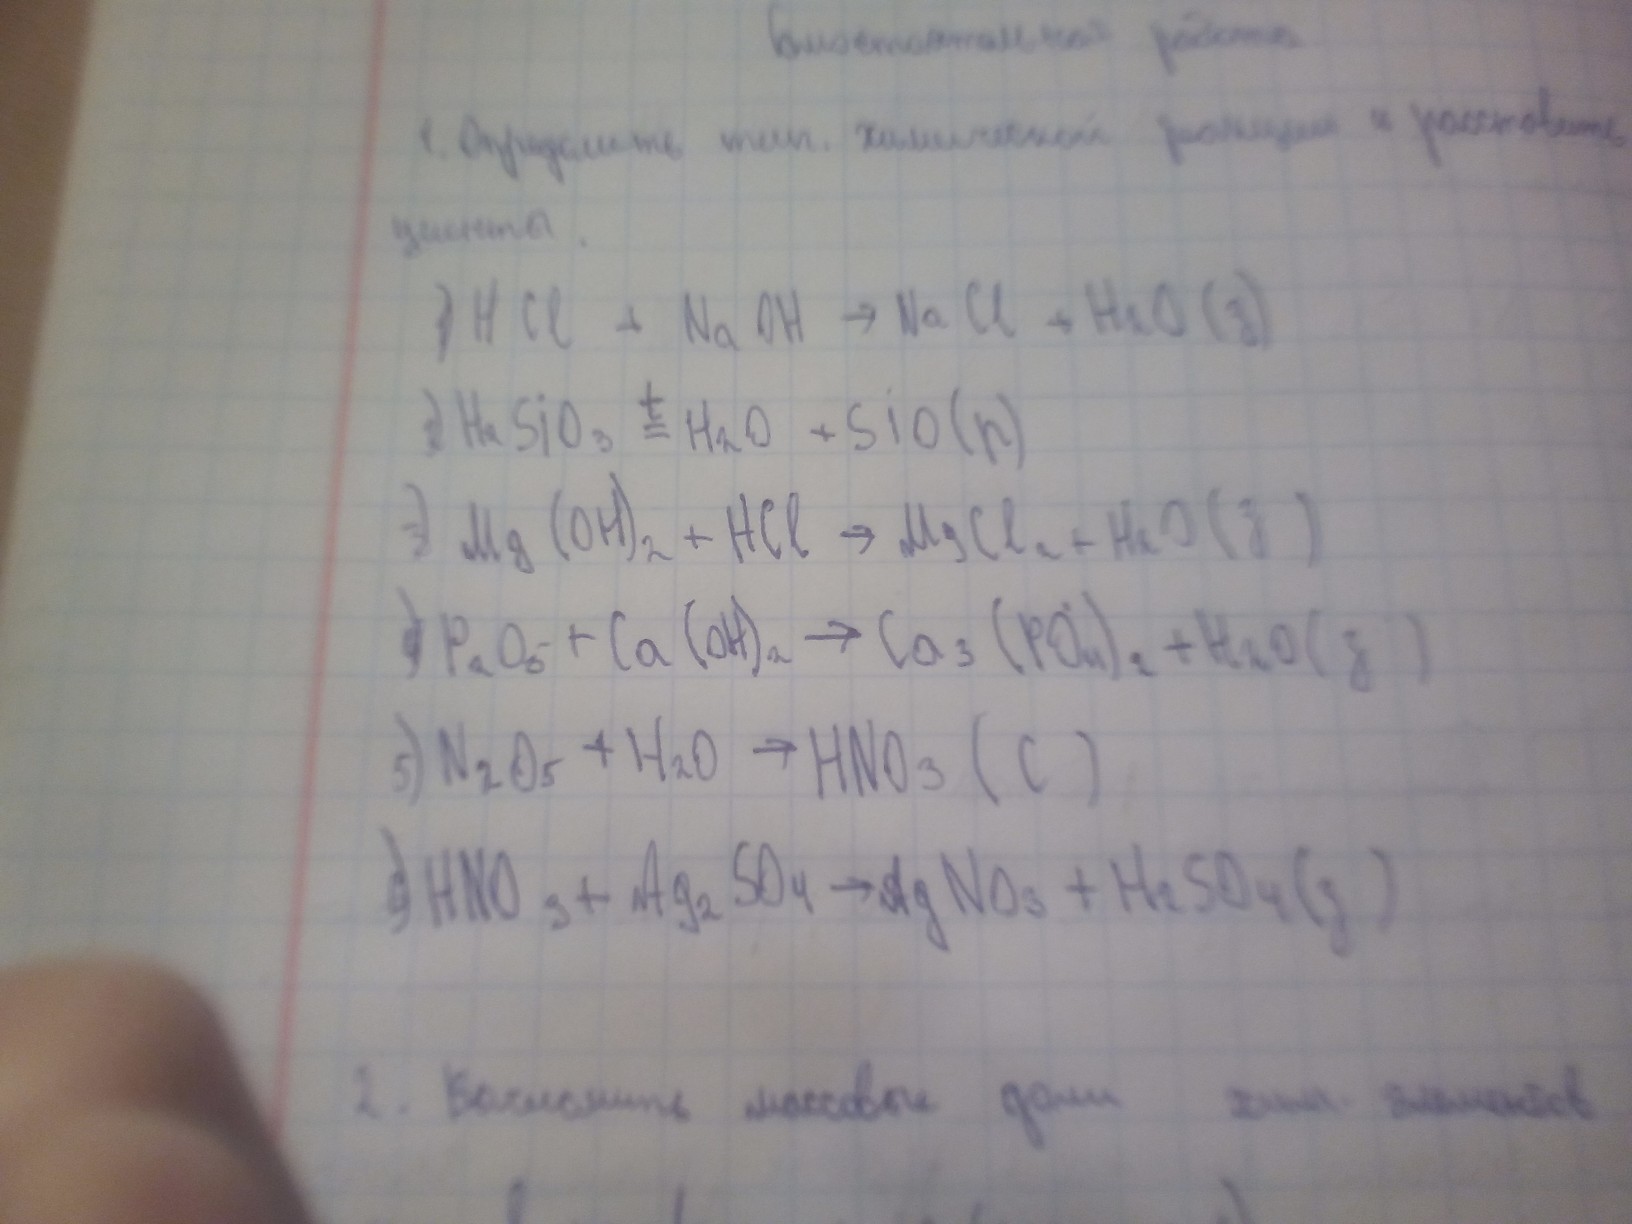 Самостоятельная работа
1. Определить тип. химической реакции и расставить
циенты.
1) HCl + NaOH → NaCl + H₂O (з)
2) H₂SiO₃ t= H₂O + SiO (р)
3) Mg(OH)₂ + HCl → MgCl₂ + H₂O (з)
4) P₂O₅ + Ca(OH)₂ → Ca₃(PO₄)₂ + H₂O (з)
5) N₂O₅ + H₂O → HNO₃ (С)
6) HNO₃ + Ag₂SO₄ → AgNO₃ + H₂SO₄ (з)
2. Вычислить массовые доли хим. элементов